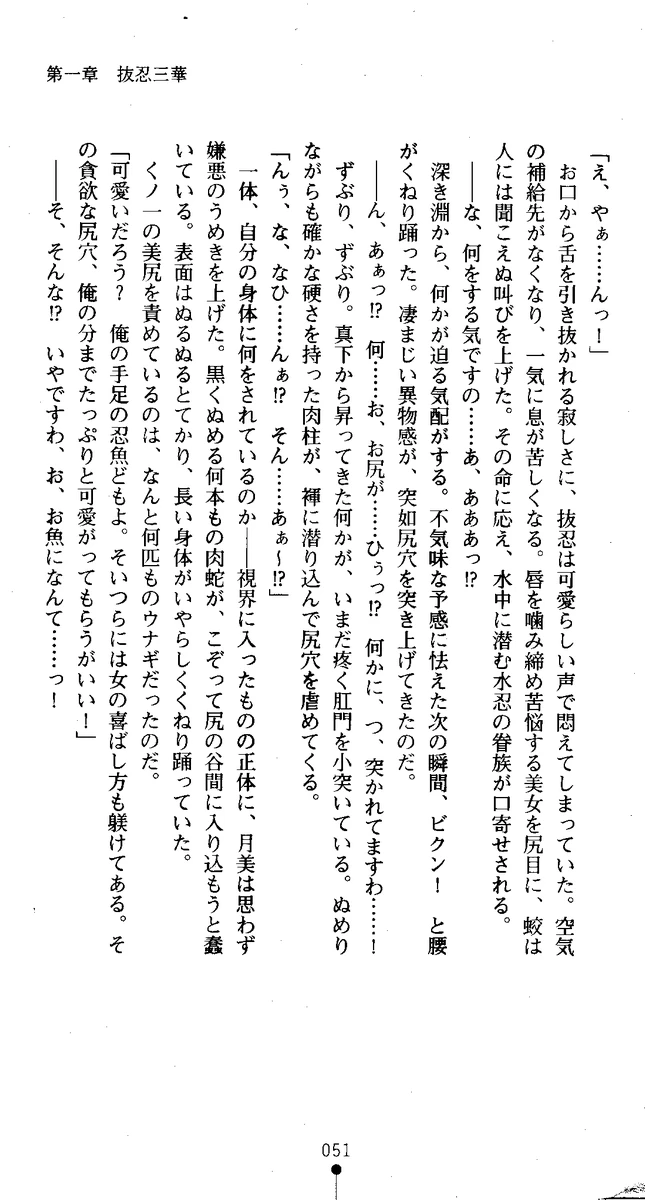 第一章　抜忍三華
「え、やぁ……んっ！」
　お口から舌を引き抜かれる寂しさに、抜忍は可愛らしい声で悶えてしまっていた。空気
の補給先がなくなり、一気に息が苦しくなる。唇を噛み締め苦悩する美女を尻目に、蛟は
人には聞こえぬ叫びを上げた。その命に応え、水中に潜む水忍の眷族が口寄せされる。
　――な、何をする気ですの……あ、あああっ!?
　深き淵から、何かが迫る気配がする。不気味な予感に怯えた次の瞬間、ビクン！　と腰
がくねり踊った。凄まじい異物感が、突如尻穴を突き上げてきたのだ。
　――ん、あぁっ!?　何……お、お尻が……ひぅっ!?　何かに、つ、突かれてますわ……！
　ずぶり、ずぶり。真下から昇ってきた何かが、いまだ疼く肛門を小突いている。ぬめり
ながらも確かな硬さを持った肉柱が、褌に潜り込んで尻穴を虐めてくる。
「んぅ、な、なひ……んぁ!?　そん……あぁ～!?」
　一体、自分の身体に何をされているのか――視界に入ったものの正体に、月美は思わず
嫌悪のうめきを上げた。黒くぬめる何本もの肉蛇が、こぞって尻の谷間に入り込もうと蠢
いている。表面はぬるぬるとてかり、長い身体がいやらしくくねり踊っていた。
　くノ一の美尻を責めているのは、なんと何匹ものウナギだったのだ。
「可愛いだろう？　俺の手足の忍魚どもよ。そいつらには女の喜ばし方も躾けてある。そ
の貪欲な尻穴、俺の分までたっぷりと可愛がってもらうがいい！」
　――そ、そんな!?　いやですわ、お、お魚になんて……っ！
051